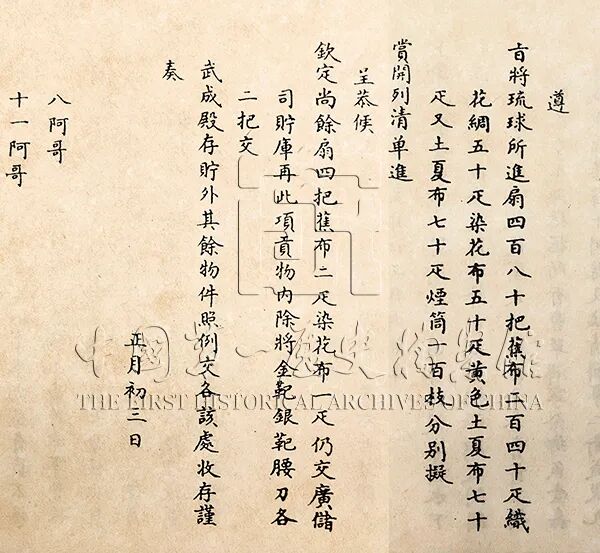 遵
旨將琉球所進扇四百八十把蕉布二百四十疋織
花綢五十疋染花布五十疋黃色土夏布七十
疋又土夏布七十疋煙筒一百枝分別擬
賞開列清单進
呈恭候
欽定尚餘扇四把蕉布二疋染花布一疋仍交廣儲
司貯庫再此項貢物內除將金靶銀靶腰刀各
二把交
武成殿存貯外其餘物件照例交各該處收存謹
奏
正月初三日
八阿哥
十一阿哥
中國第一歷史檔案館
THE FIRST HISTORICAL ARCHIVES OF CHINA